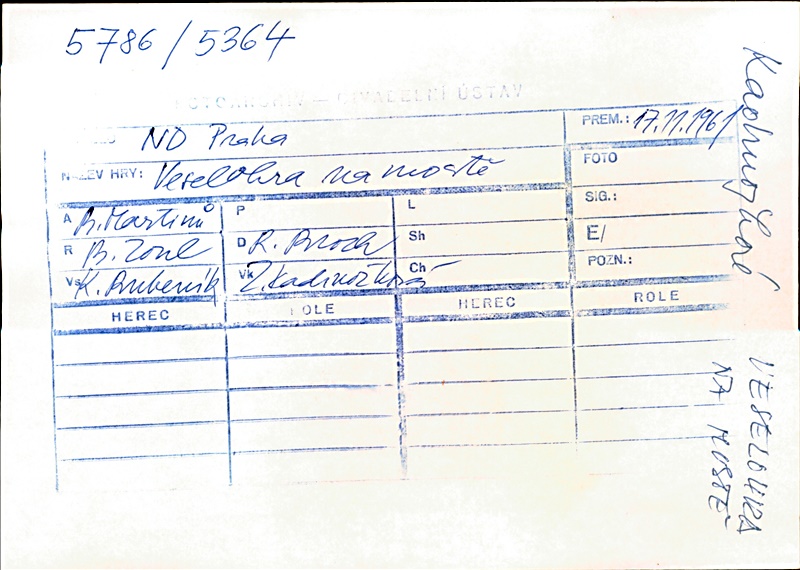 5786/5364
FOTOARCHIV — DIVADELNÍ ÚSTAV
ND Praha
PREM.: 17.11.1961
NÁZEV HRY: Veselohra na mostě
FOTO
A B. Martinů
P
L
SIG.:
R B. Zoul
D R. Brock
Sh
E/
Vs K. Bubeník
Vk Z. Kadrnožková
Ch
POZN.:
HEREC
ROLE
HEREC
ROLE
Kadrnožková
VESELOHRA
NA MOSTĚ